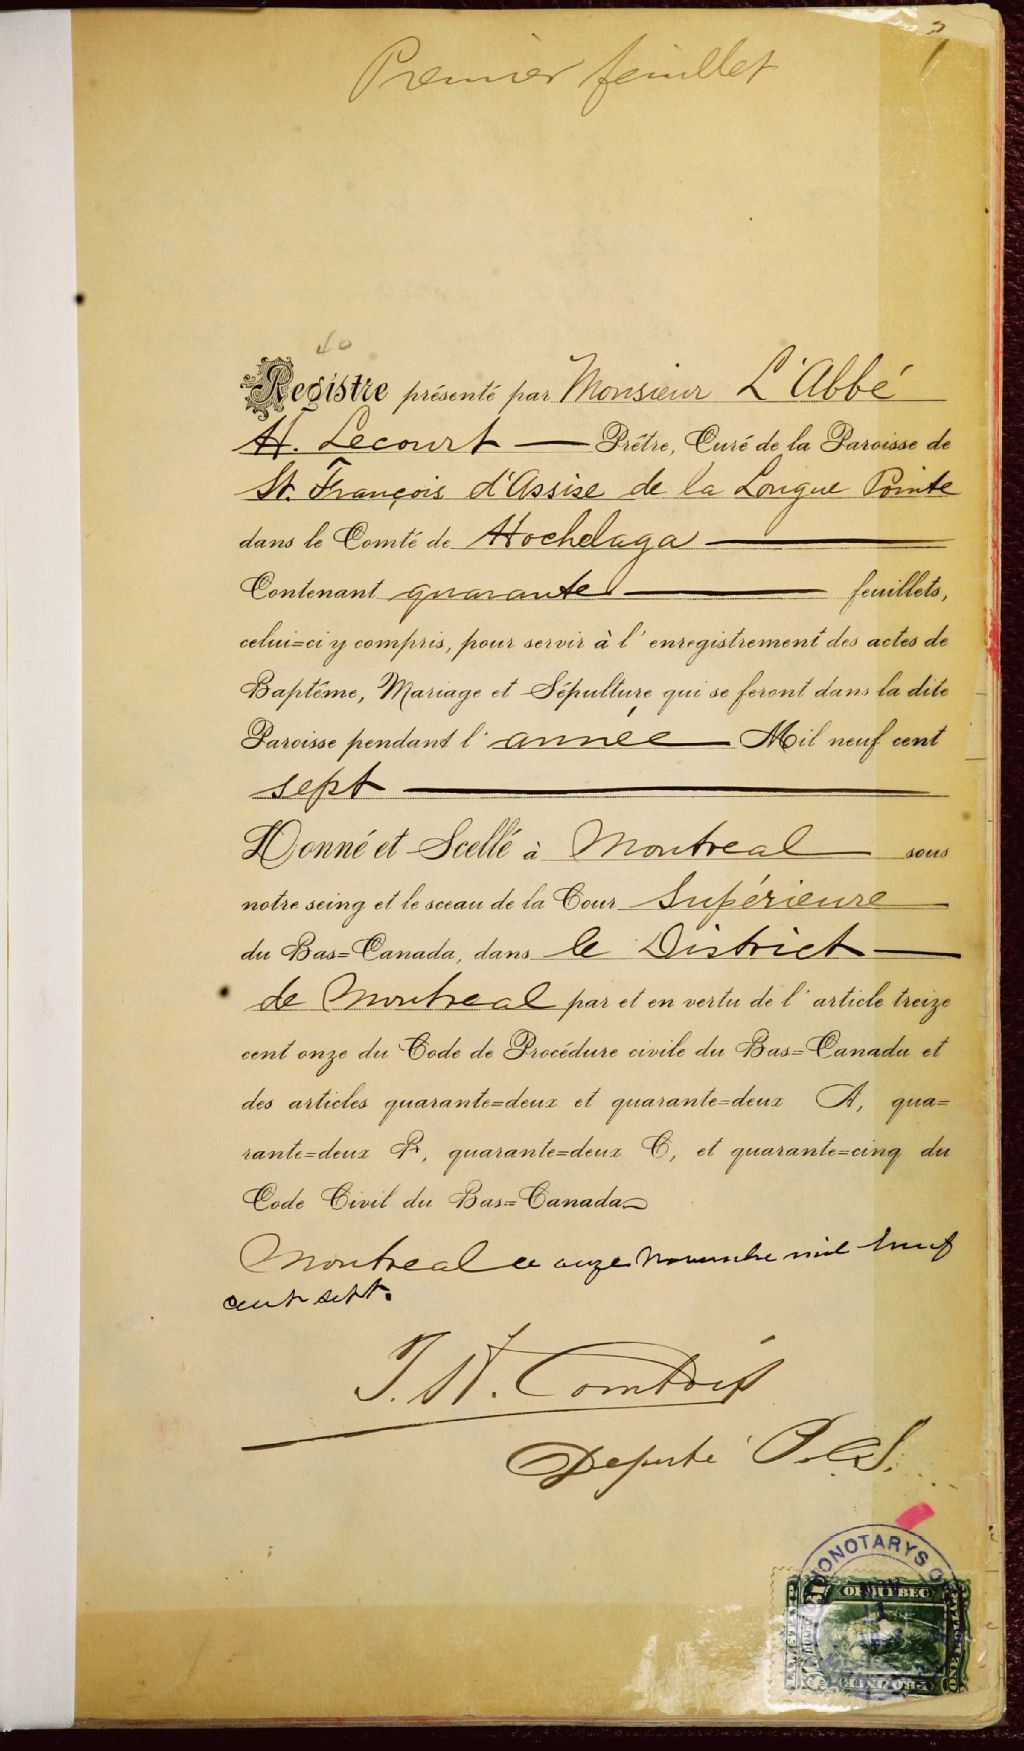 Premier feuillet
40
Registre présenté par Monsieur L'Abbé
H. Lecourt — Prêtre, Curé de la Paroisse de
St. François d'Assise de la Longue Pointe
dans le Comté de Hochelaga
Contenant quarante feuillets,
celui=ci y compris, pour servir à l'enregistrement des actes de
Baptême, Mariage et Sépulture qui se feront dans la dite
Paroisse pendant l'année Mil neuf cent
sept
Donné et Scellé à Montreal sous
notre seing et le sceau de la Cour Supérieure
du Bas=Canada, dans le District
de Montreal par et en vertu de l'article treize
cent onze du Code de Procédure civile du Bas=Canada et
des articles quarante=deux et quarante=deux A, qua=
rante=deux B, quarante=deux C, et quarante=cinq du
Code Civil du Bas=Canada
Montreal ce onze Novembre mil neuf
cent sept.
Comtois
Deputé P.C.S.
ONOTARYS O
NOV
OF QUEBEC
ONE DOLLAR